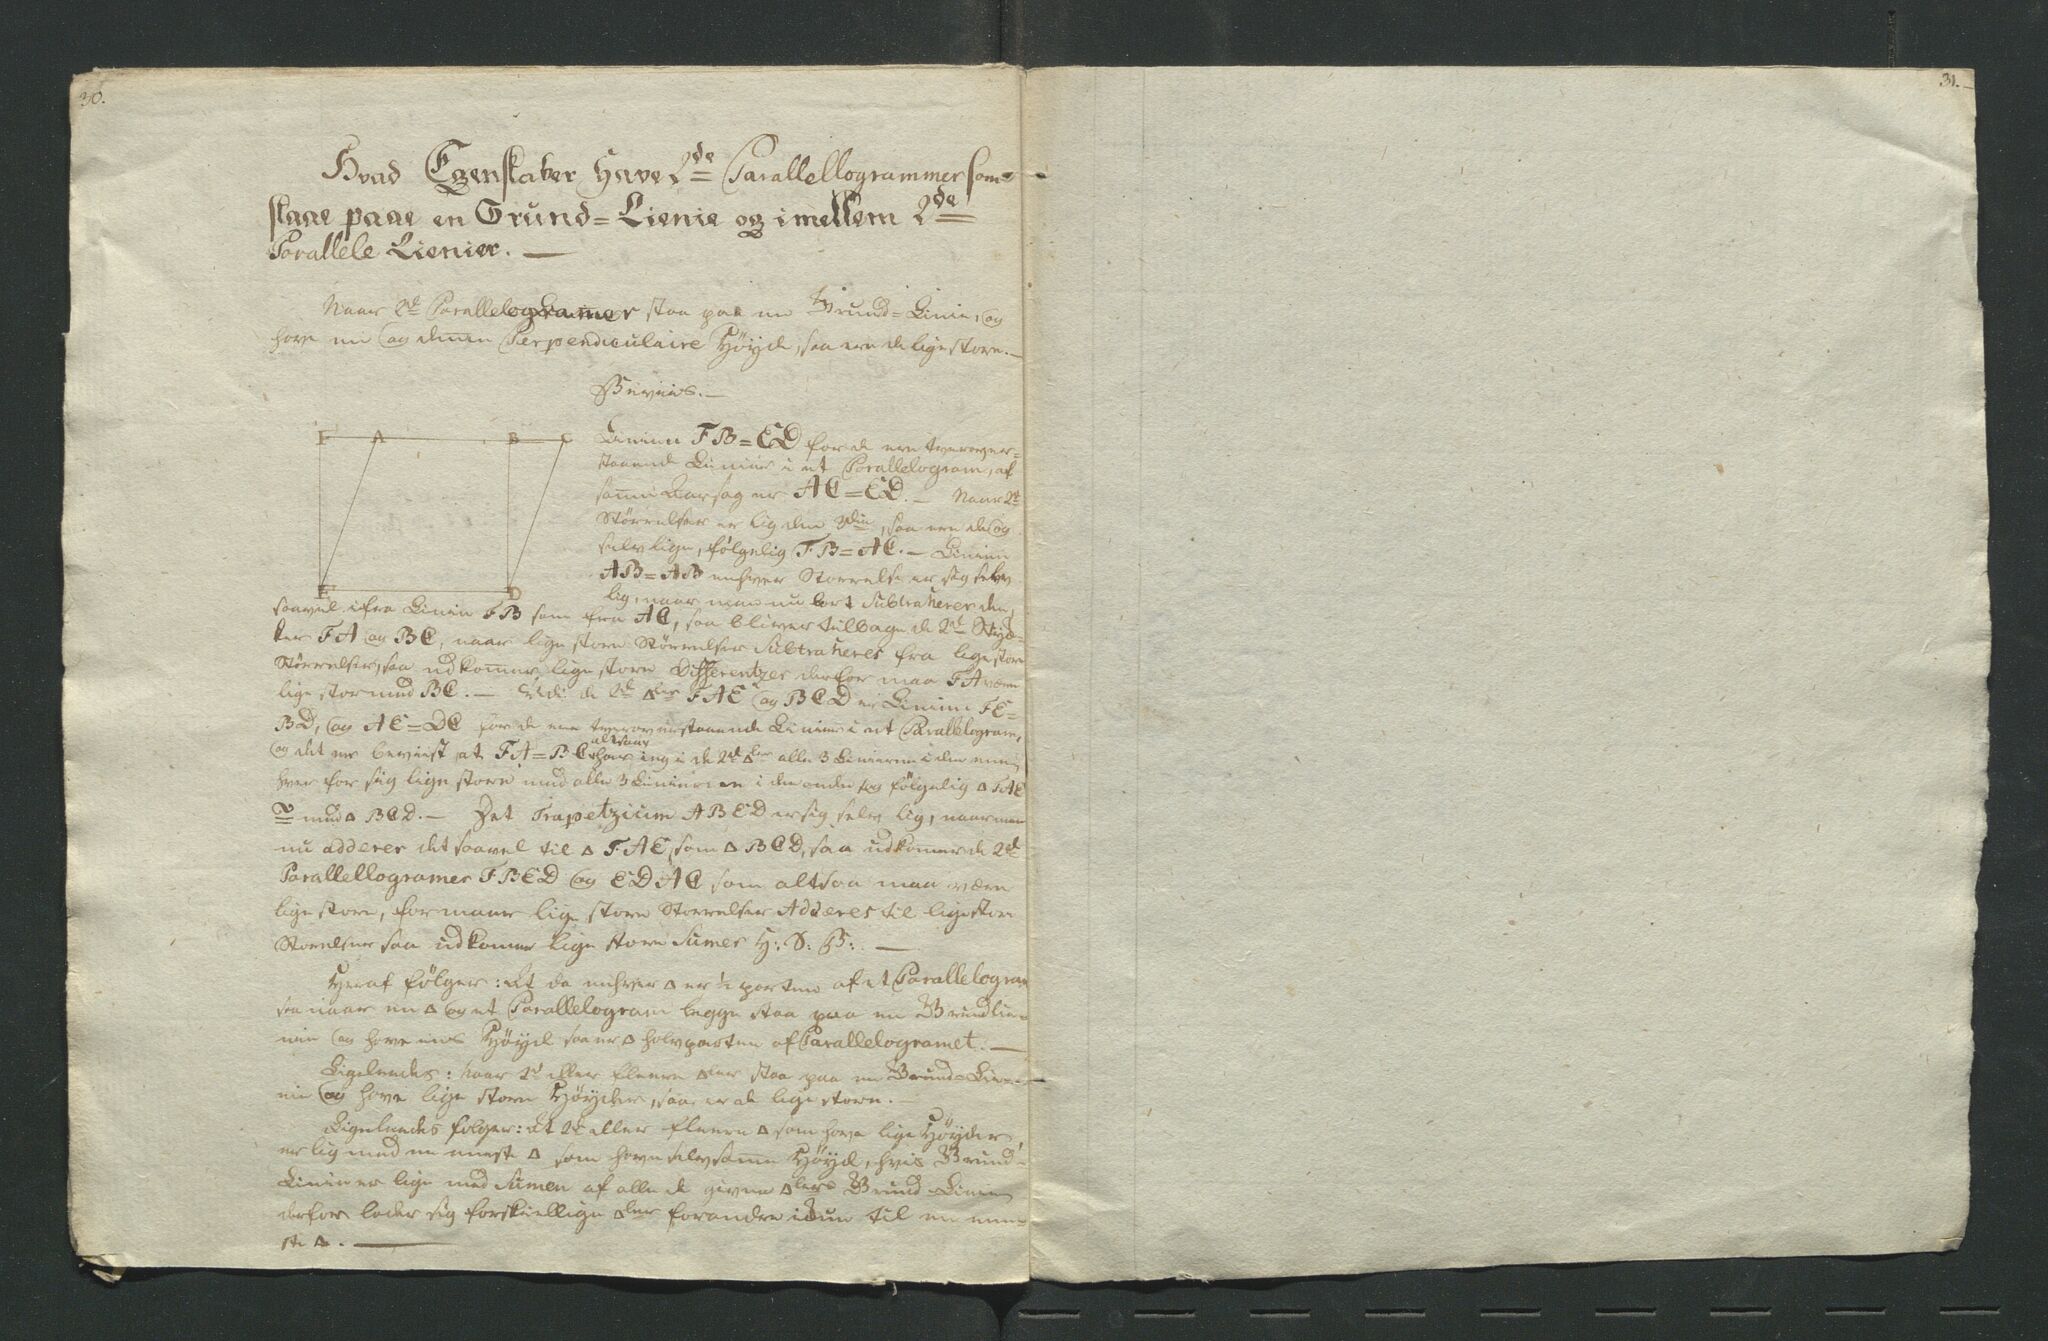 30.
31.
Hvad Egenskaber Have 2de Parallellogrammer som
staae paae en Grund=Lienie og imellem 2de
Parallele Lienier.
Naar 2de Parallelogramer staa paa en Grund=Linie, og
have en og denen Perpendiculaire Höyde, saa ere de lige store.
Beviis.
F A B C
E D
Linien FB=ED for de ere tverover=
staaende Linier i et Parallelogram, af
samme Aarsag er AC=ED. Naar 2de
Störrelser er lig den 3die, saa ere de og
selv lige, fölgelig FB=AC. Linien
AB=AB enhver Störrelse er sig selv
lig, naar man nu bort Subtraherer den,
saavel ifra Linien FB som fra AC, saa bliver tilbage de 2de Styk=
ker FA og BC, naar lige store Störrelser Subtraheres fra lige store
Störrelser, saa udkomer lige store Differentzer derfor maa FA være
lige stor med BC. Udi de 2de ∆ler FAE og BCD er Linien FE=
BD, og AE=DC for de ere tverover staaende Linier i et Parallelogram,
og det er beviist at FA=BC altsaa har ieg i de 2de ∆ler alle 3 Linierne i den eene
hver for sig lige store med alle 3 Linierne i den anden og fölgelig ∆ FAE
med ∆ BCD. Det Trapetzium ABED er sig selv lig, naar man
nu adderer det saavel til ∆ FAE, som ∆ BCD, saa udkomer de 2de
Parallellogramer FBED og EDAC som altsaa maa være
lige store, for naar lige store Störrelser Adderes til lige store
Störrelser saa udkomer lige store Sumer H: S: B:
Heraf fölger: At da enhver ∆ er ½ parten af et Parallelogram
saa naar en ∆ og et Parallelogram begge staa paa en Grundlie=
nie og have ens Höyde saa er ∆ halvparten af Parallelogramet.
Ligeleedes: naar 2de eller fleere ∆ler staa paa en Grund=Lie=
nie og have lige store Höyder, saa er de lige store.
Ligeleedes fölger: At 2de eller fleere ∆ som have lige Höyder,
er lig med en eneste ∆ som have selvsamme Höyde, hvis Grund=
Linie er lige med Sumen af alle de givne ∆lers Grund=Linier
derfor lader sig forskiellige ∆ler forandre til en ene=
ste ∆.